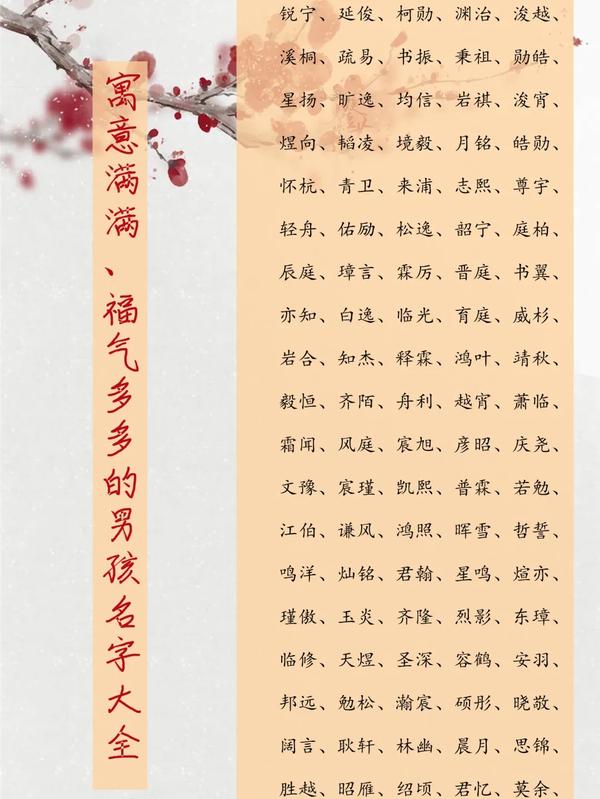 寓意满满、福气多多的男孩名字大全
锐宁、延俊、柯勋、渊治、浚越、
溪桐、疏易、书振、秉祖、勋皓、
星扬、旷逸、均信、岩祺、浚宵、
煜向、韬凌、境毅、月铭、皓勋、
怀杭、青卫、来浦、志熙、尊宇、
轻舟、佑励、松逸、韶宁、庭柏、
辰庭、璋言、霖厉、晋庭、书翼、
亦知、白逸、临光、育庭、威杉、
岩合、知杰、释霖、鸿叶、靖秋、
毅恒、齐陌、舟利、越宵、萧临、
霜闻、风庭、宸旭、彦昭、庆尧、
文豫、宸瑾、凯熙、普霖、若勉、
江伯、谦风、鸿照、晖雪、哲誓、
鸣洋、灿铭、君翰、星鸣、煊亦、
瑾傲、玉炎、齐隆、烈影、东璋、
临修、天煜、圣深、容鹤、安羽、
邦远、勉松、瀚宸、硕彤、晓敬、
阔言、耿轩、林幽、晨月、思锦、
胜越、昭雁、绍顷、君忆、莫余、